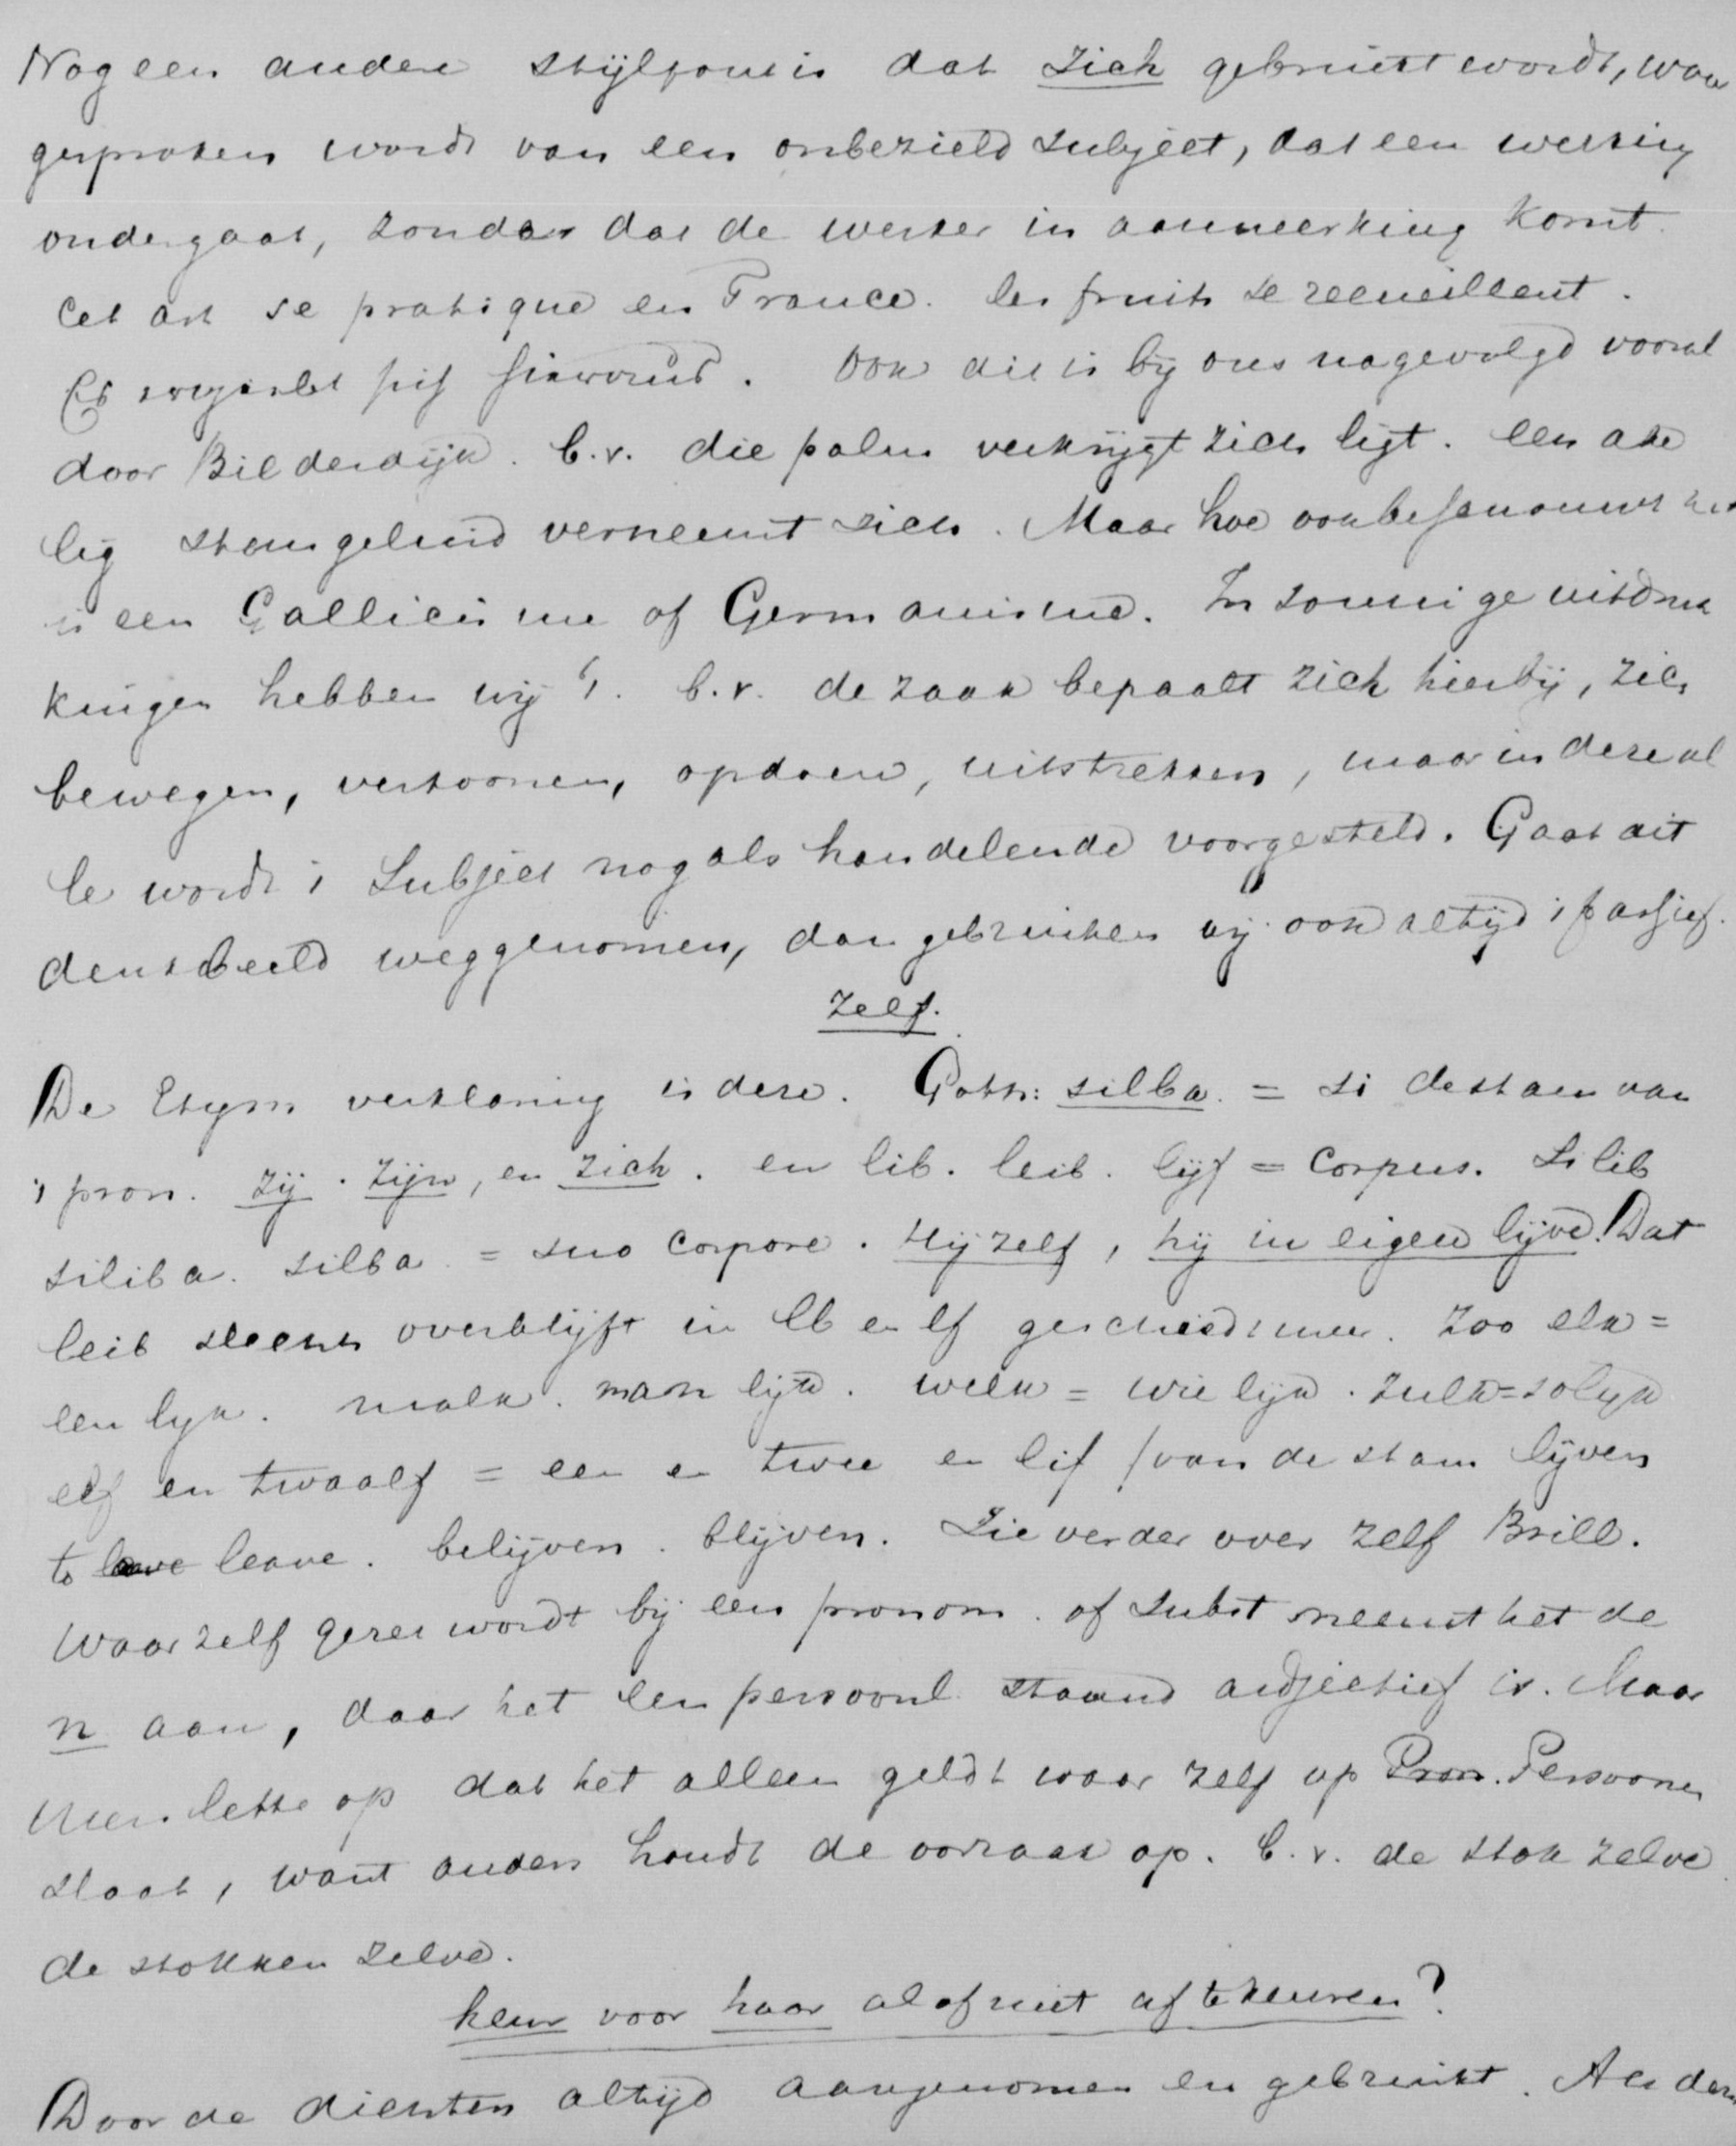 Nog een andere stijlfout is dat zich gebruikt wordt, waar
gesproken wordt van een onbezield subject, dat een werking
ondergaat, zonder dat de werker in aanmerking komt.
Cet art se pratique en France. les fruits se recueillent.
Es ergiebt sich hieraus. Ook dit is bij ons nagevolgd vooral
door Bilderdijk. b.v. die palm verkrijgt zich ligt. een ake
lig steungeluid verneemt zich. Maar hoe ook beschouwd het
is een Gallicisme of Germanisme. In sommige uitdruk
kingen hebben wij 't. b.v. de zaak bepaalt zich hierbij, zich
bewegen, vertoonen, opdoen, uitstrekken, maar in deze al
le wordt 't Subject nog als handelende voorgesteld. Gaat dit
denkbeeld weggenomen, dan gebruiken wij ook altijd 't passief.
Zelf.
De Etym verklaring is deze. Goth: silba. = si de stam van
't pron. zij. zijn, en zich. en lib. leib. lijf = corpus. Silib
siliba. silba. = suo corpore. Hij zelf, hij in eigen lijve. Dat
leib slechts overblijft in lb en lf geschiedt meer. Zoo elk =
een lijk. malk. man lijk. welk = wie lijk. zulk = solijk
elf en twaalf = een en twee en lif (van de stam lijven
to leave. belijven. blijven. Zie verder over zelf Brill.
Waar zelf gezet wordt bij een pronom. of Subst neemt het de
n aan, daar het een persoonl. staand adjectief is. Maar
Men lette op dat het alleen geldt waar zelf op Pron. Persoonen
slaat, want anders houdt de oorzaak op. b.v. de stok zelve
de stokken zelve.
hem voor haar al of niet af te keuren?
Door de dichters altijd aangenomen en gebruikt. Als der